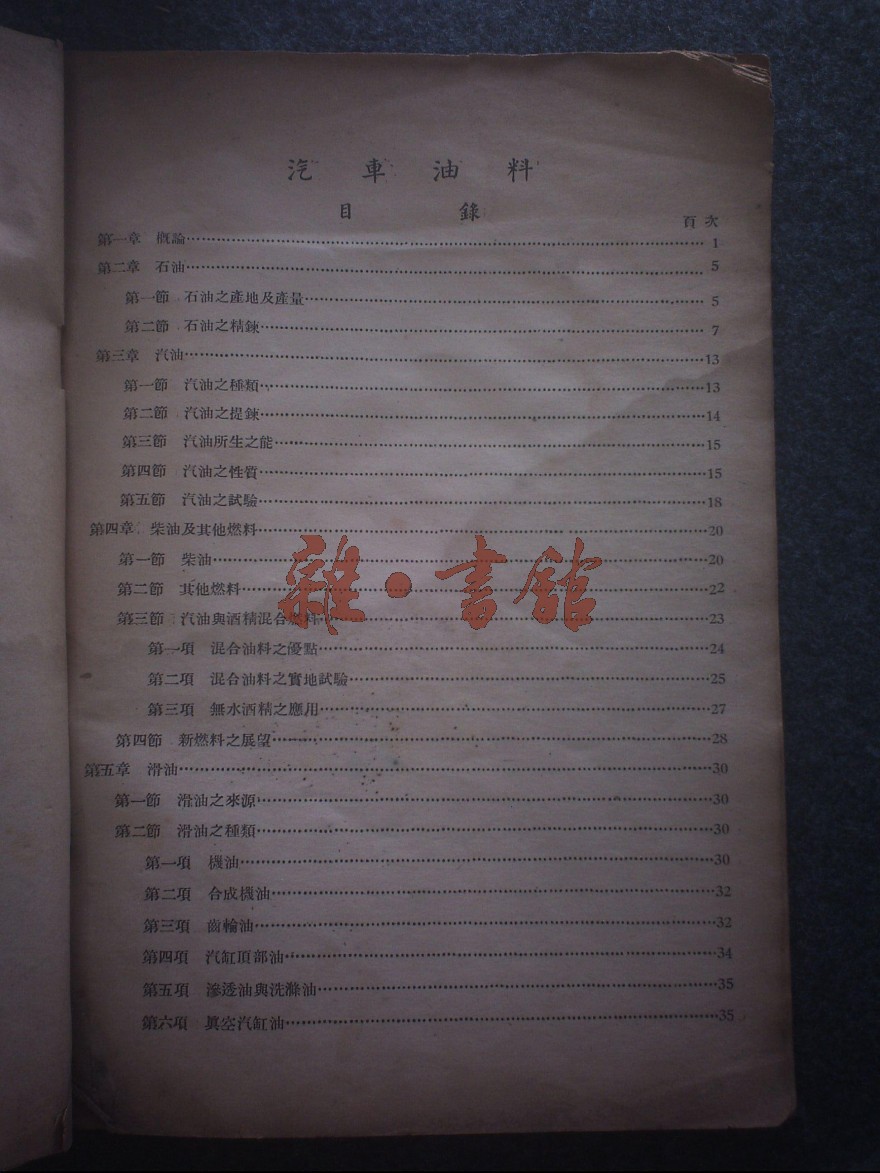 汽車油料
目錄
頁次
第一章 概論……1
第二章 石油……5
第一節 石油之產地及產量……5
第二節 石油之精鍊……7
第三章 汽油……13
第一節 汽油之種類……13
第二節 汽油之提鍊……14
第三節 汽油所生之能……15
第四節 汽油之性質……15
第五節 汽油之試驗……18
第四章 柴油及其他燃料……20
第一節 柴油……20
第二節 其他燃料……22
第三節 汽油與酒精混合燃料……23
第一項 混合油料之優點……24
第二項 混合油料之實地試驗……25
第三項 無水酒精之應用……27
第四節 新燃料之展望……28
第五章 滑油……30
第一節 滑油之來源……30
第二節 滑油之種類……30
第一項 機油……30
第二項 合成機油……32
第三項 齒輪油……32
第四項 汽缸頂部油……34
第五項 滲透油與洗滌油……35
第六項 眞空汽缸油……35
雜·書館